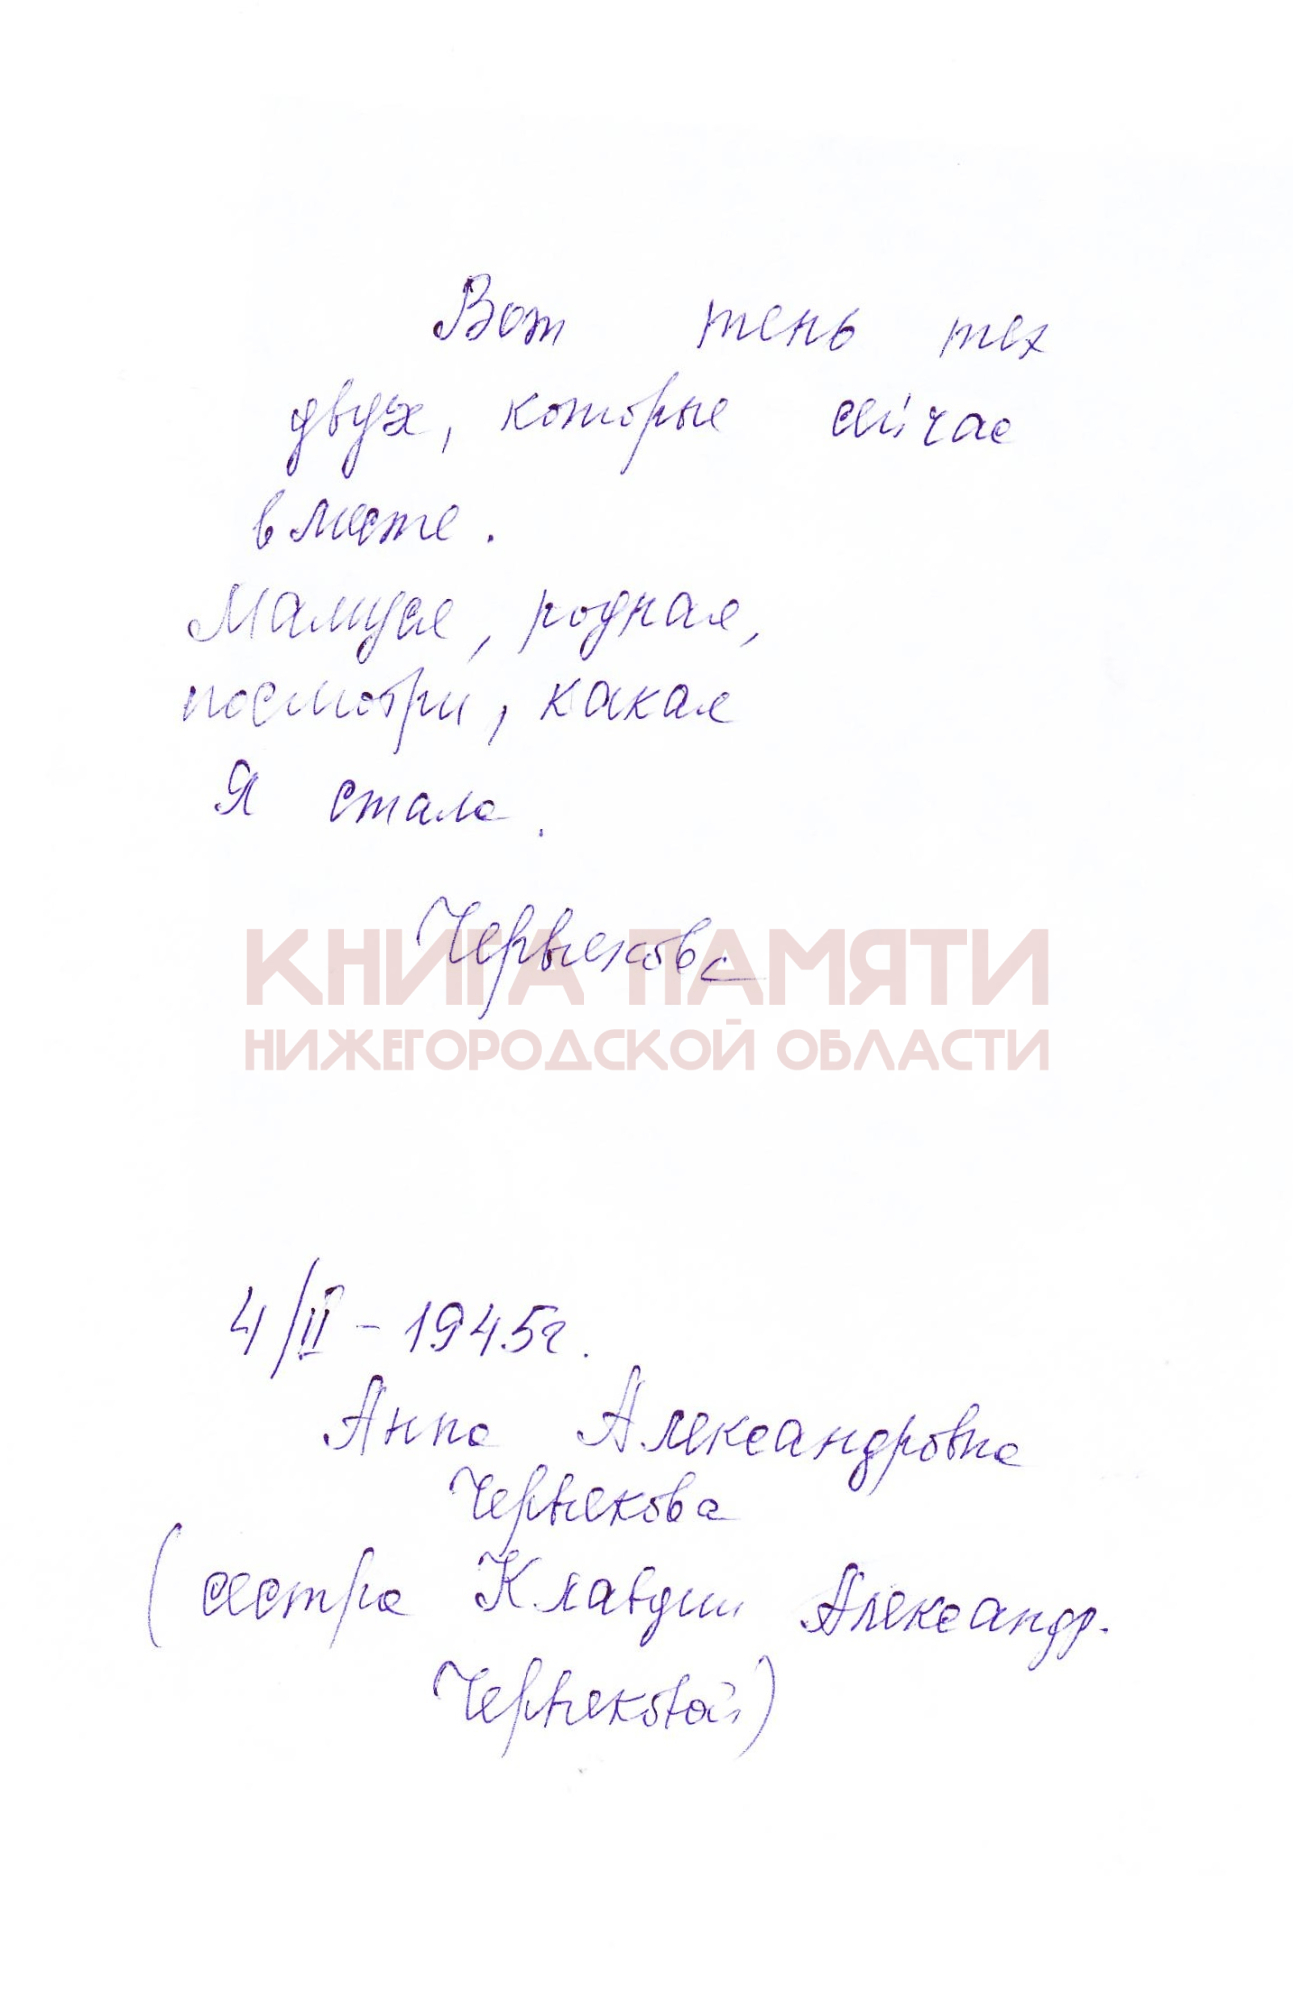 Вот тень тех
двух, которые сейчас
вместе.
Мамуся, родная,
посмотри, какая
Я стала.
Червякова
КНИГА ПАМЯТИ
НИЖЕГОРОДСКОЙ ОБЛАСТИ
4/II - 1945г.
Анна Александровна
Червякова
(сестра Клавдии Александр.
Червяковой)